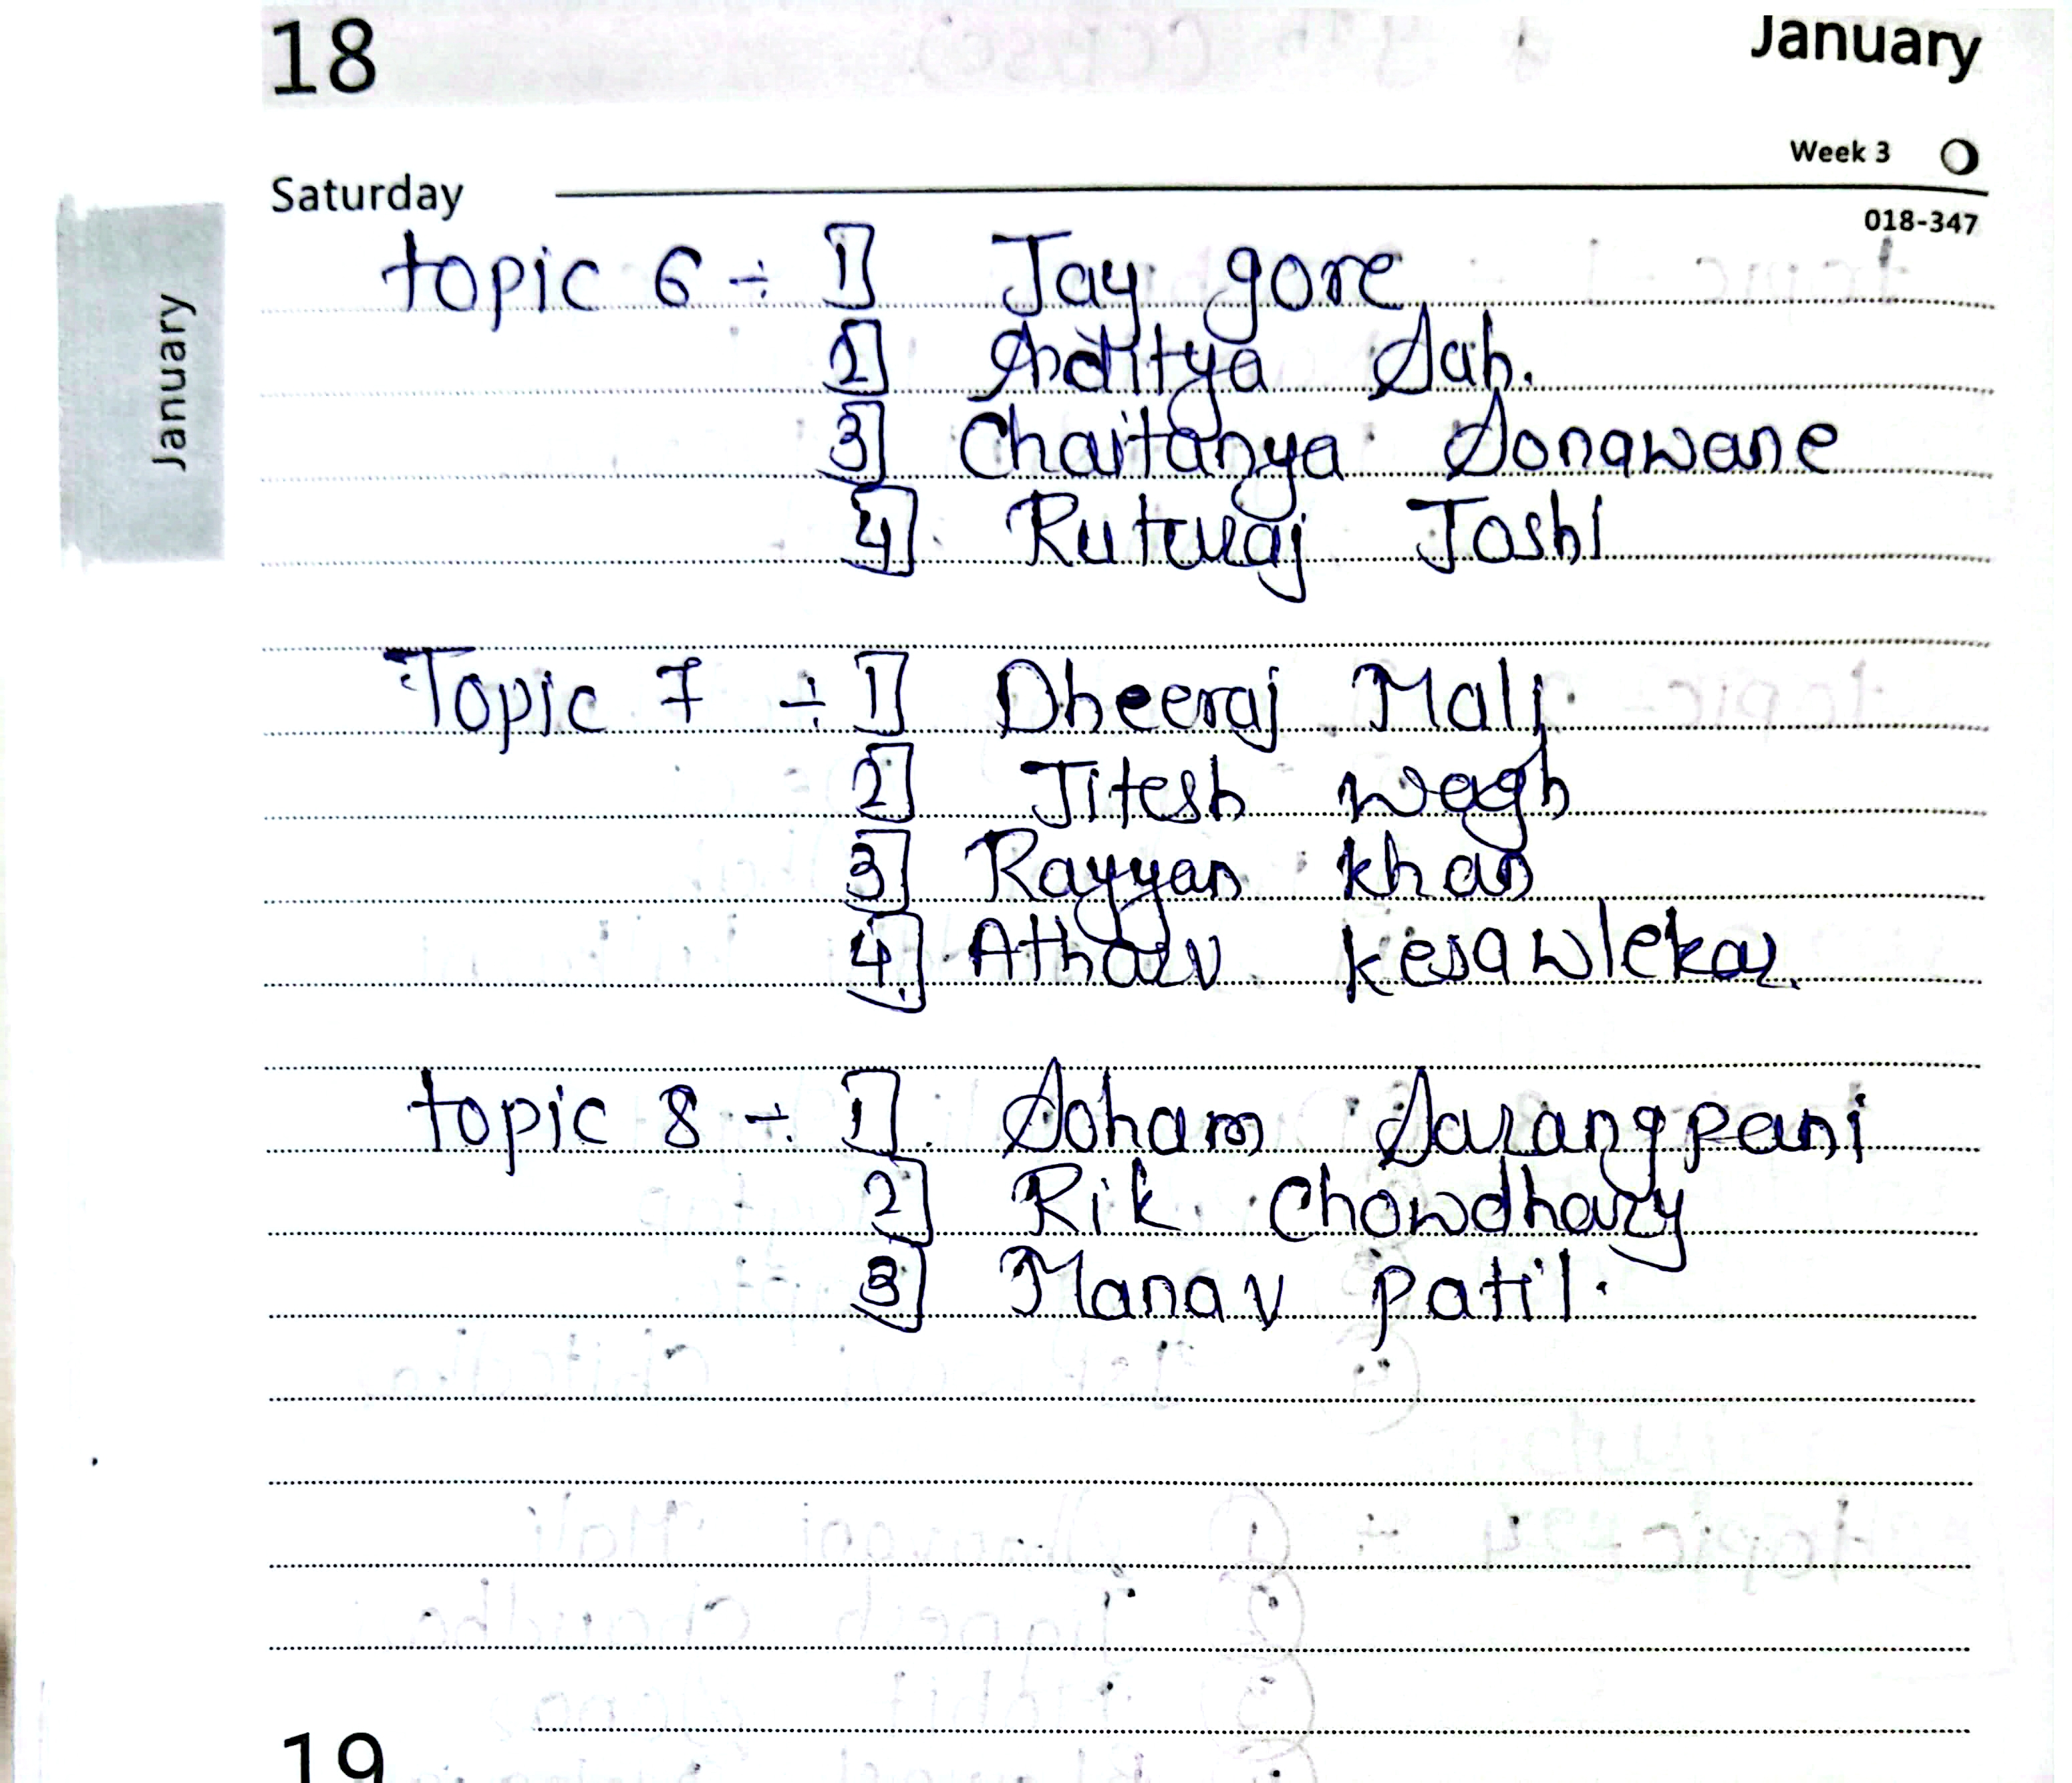 18 January
Week 3
Saturday
018-347
January
topic 6 ÷ 1] Jay gore
2] Aditya Sah.
3] Chaitanya Sonawane
4] Ruturaj Joshi
Topic 7 ÷ 1] Dheeraj Mali
2] Jitesh wagh
3] Rayyan khan
4] Atharv kesawlekar
topic 8 ÷ 1] Soham Sarangpani
2] Rik Chowdhary
3] Manav patil.
19